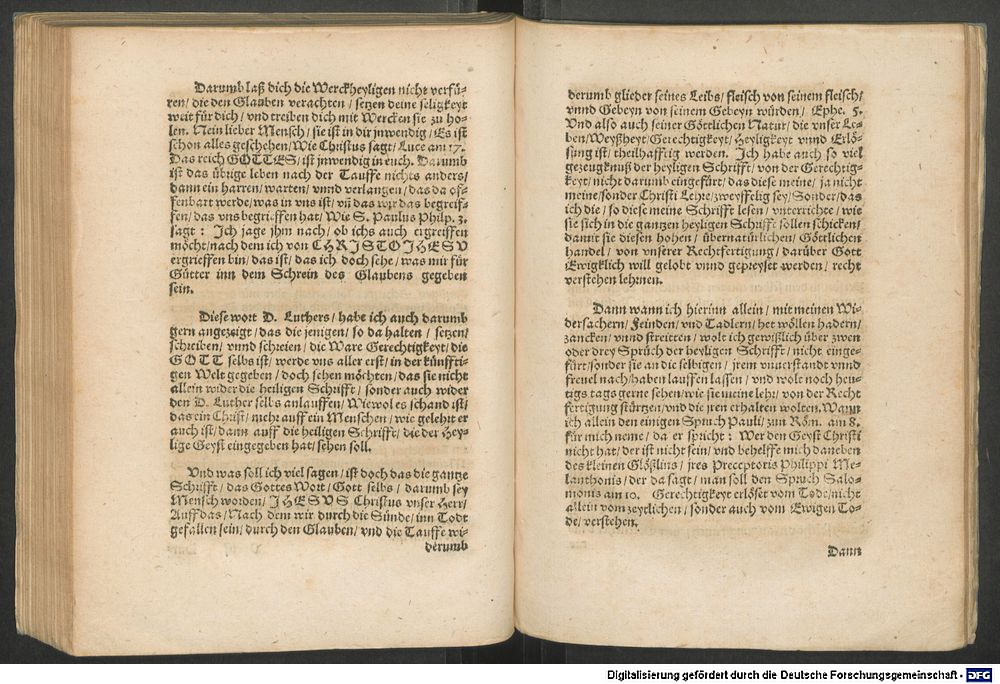 Darumb laß dich die Werckheyligen nicht verfü⸗
ren/ die den Glauben verachten/ setzen deine seligkeyt
weit für dich/ vnd treiben dich mit Wercken sie zu ho⸗
len. Nein lieber Mensch/ sie ist in dir jnwendig/ Es ist
schon alles geschehen/ Wie Christus sagt/ Luce am 17.
Das reich GOTTES/ ist jnwendig in euch. Darumb
ist das übrige leben nach der Tauffe nichts anders/
dann ein harren/ warten/ vnnd verlangen/ das da of⸗
fenbart werde/ was in vns ist/ vñ das wir das begreif⸗
fen/ das vns begrieffen hat/ Wie S. Paulus Philp. 3.
sagt: Ich jage jhm nach/ ob ichs auch ergreiffen
möcht/ nach dem ich von CHRISTO JHESV
ergrieffen bin/ das ist/ das ich doch sehe/ was mir für
Gütter inn dem Schrein des Glaubens gegeben
sein.
Diese wort D. Luthers/ habe ich auch darumb
gern angezeigt/ das die jenigen/ so da halten/ setzen/
schreiben/ vnnd schreien/ die Ware Gerechtigkeyt/ die
GOTT selbs ist/ werde vns aller erst/ in der künffti⸗
gen Welt gegeben/ doch sehen möchten/ das sie nicht
allein wider die heiligen Schrifft/ sonder auch wider
den D. Luther selbs anlauffen/ Wiewol es schand ist/
das ein Christ/ mehr auff ein Menschen/ wie gelehrt er
auch ist/ dann auff die heiligen Schrifft/ die der Hey⸗
lige Geyst eingegeben hat/ sehen soll.
Vnd was soll ich viel sagen/ ist doch das die gantze
Schrifft/ das Gottes Wort/ Gott selbs/ darumb sey
Mensch worden/ JHESVS Christus vnser Herr/
Auff das/ Nach dem wir durch die Sünde/ inn Todt
gefallen sein/ durch den Glauben/ vnd die Tauffe wi⸗
derumb
derumb glieder seines Leibs/ fleisch von seinem fleisch/
vnnd Gebeyn von seinem Gebeyn würden/ Ephe. 5.
Vnd also auch seiner Göttlichen Natur/ die vnser Le⸗
ben/ Weyßheyt/ Gerechtigkeyt/ Heyligkeyt vnnd Erlö⸗
sung ist/ theilhafftig werden. Ich habe auch so viel
gezeugknuß der heyligen Schrifft/ von der Gerechtig⸗
keyt/ nicht darumb eingefürt/ das diese meine/ ja nicht
meine/ sonder Christi Lehre/ zweyffelig sey/ Sonder/ das
ich die/ so diese meine Schrifft lesen/ vnterrichte/ wie
sie sich in die gantzen heyligen Schrifft sollen schicken/
damit sie diesen hohen/ übernatürlichen/ Göttlichen
handel/ von vnserer Rechtfertigung/ darüber Gott
Ewigklich will gelobt vnnd gepreyset werden/ recht
verstehen lehrnen.
Dann wann ich hierinn allein/ mit meinen Wi⸗
dersachern/ Feinden/ vnd Tadlern/ het wöllen hadern/
zancken/ vnnd streitten/ wolt ich gewißlich über zwen
oder drey Sprüch der heyligen Schrifft/ nicht einge⸗
fürt/ sonder sie an die selbigen/ jrem vnuerstandt vnnd
freuel nach/ haben lauffen lassen/ vnd wolt noch heu⸗
tigs tags gerne sehen/ wie sie meine lehr/ von der Recht
fertigung stürtzen/ vnd die jren erhalten wolten. Wann
ich allein den einigen Spruch Pauli/ zun Röm. am 8.
für mich neme/ da er spricht: Wer den Geyst Christi
nicht hat/ der ist nicht sein/ vnd behelffe mich daneben
des kleinen Glößlins/ jres Preceptoris Philippi Me⸗
lanthonis/ der da sagt/ man soll den Spruch Salo⸗
monis am 10. Gerechtigkeyt erlöset vom Tode/ nicht
allein vom zeytlichen/ sonder auch vom Ewigen To⸗
de/ verstehen.
Dann
Digitalisierung gefördert durch die Deutsche Forschungsgemeinschaft - DFG